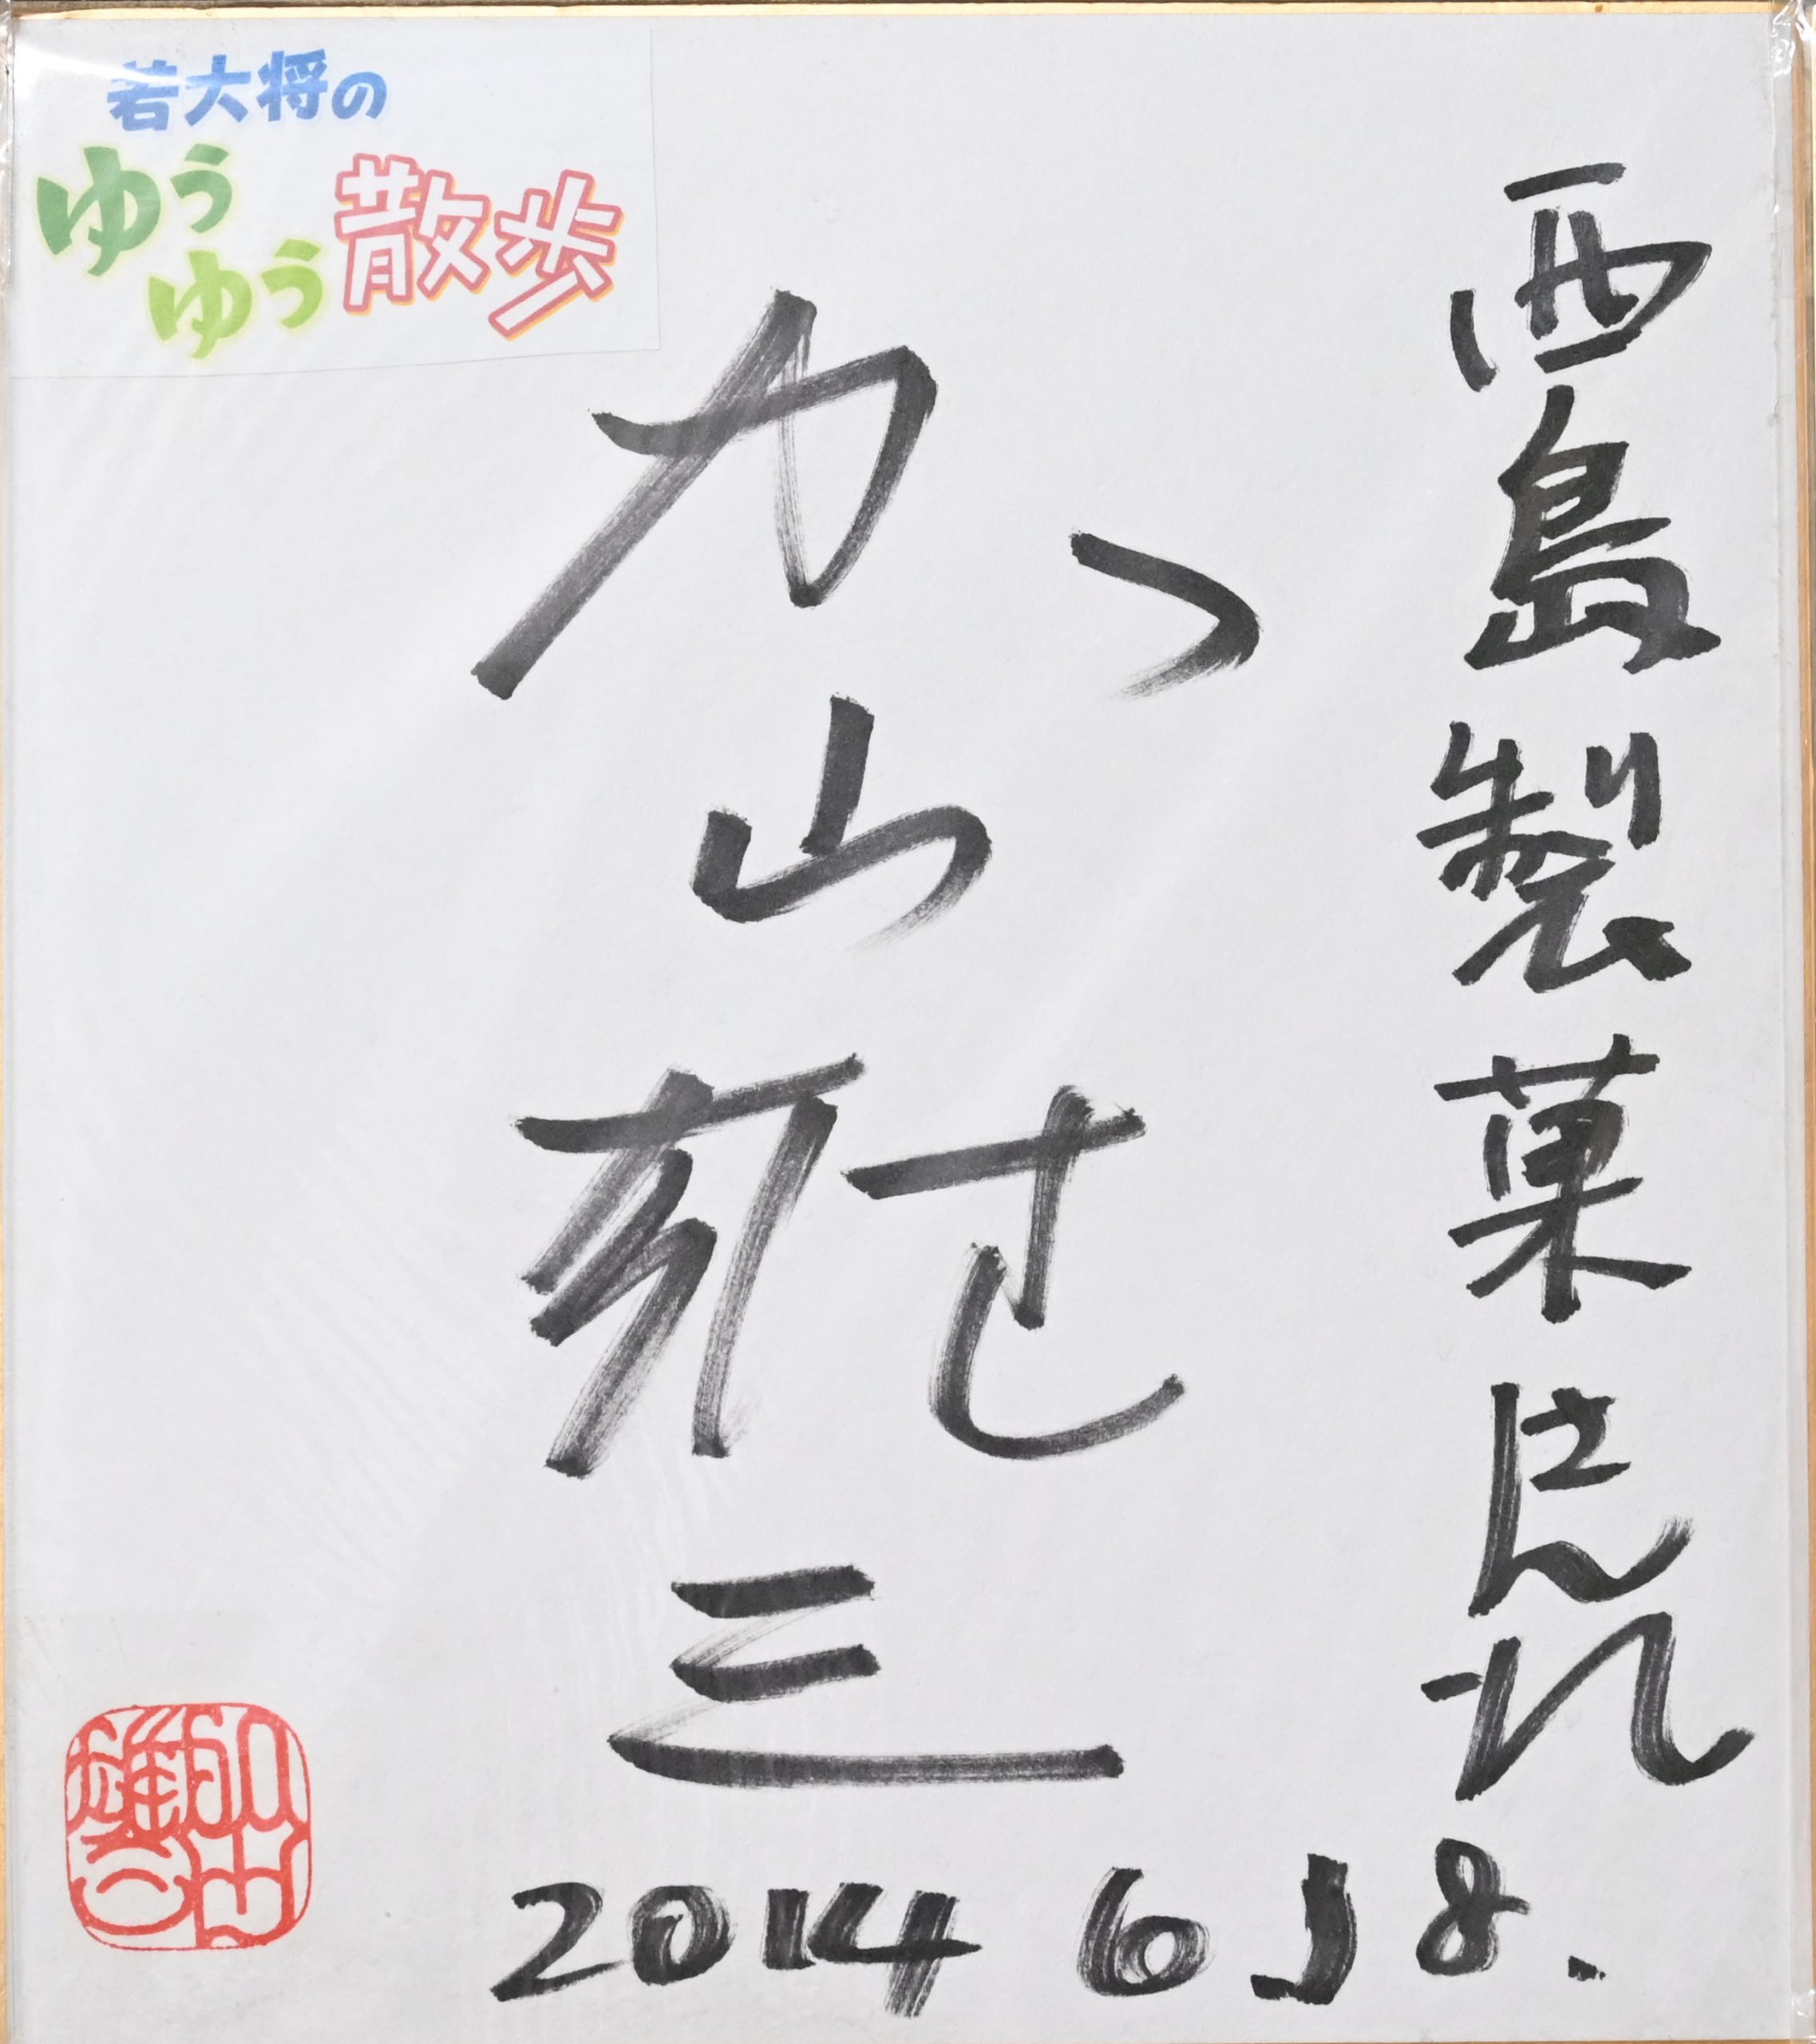 若大将の
ゆうゆう散歩
西島製菓さん江
加山雄三
2014 6 18.
加山雄三